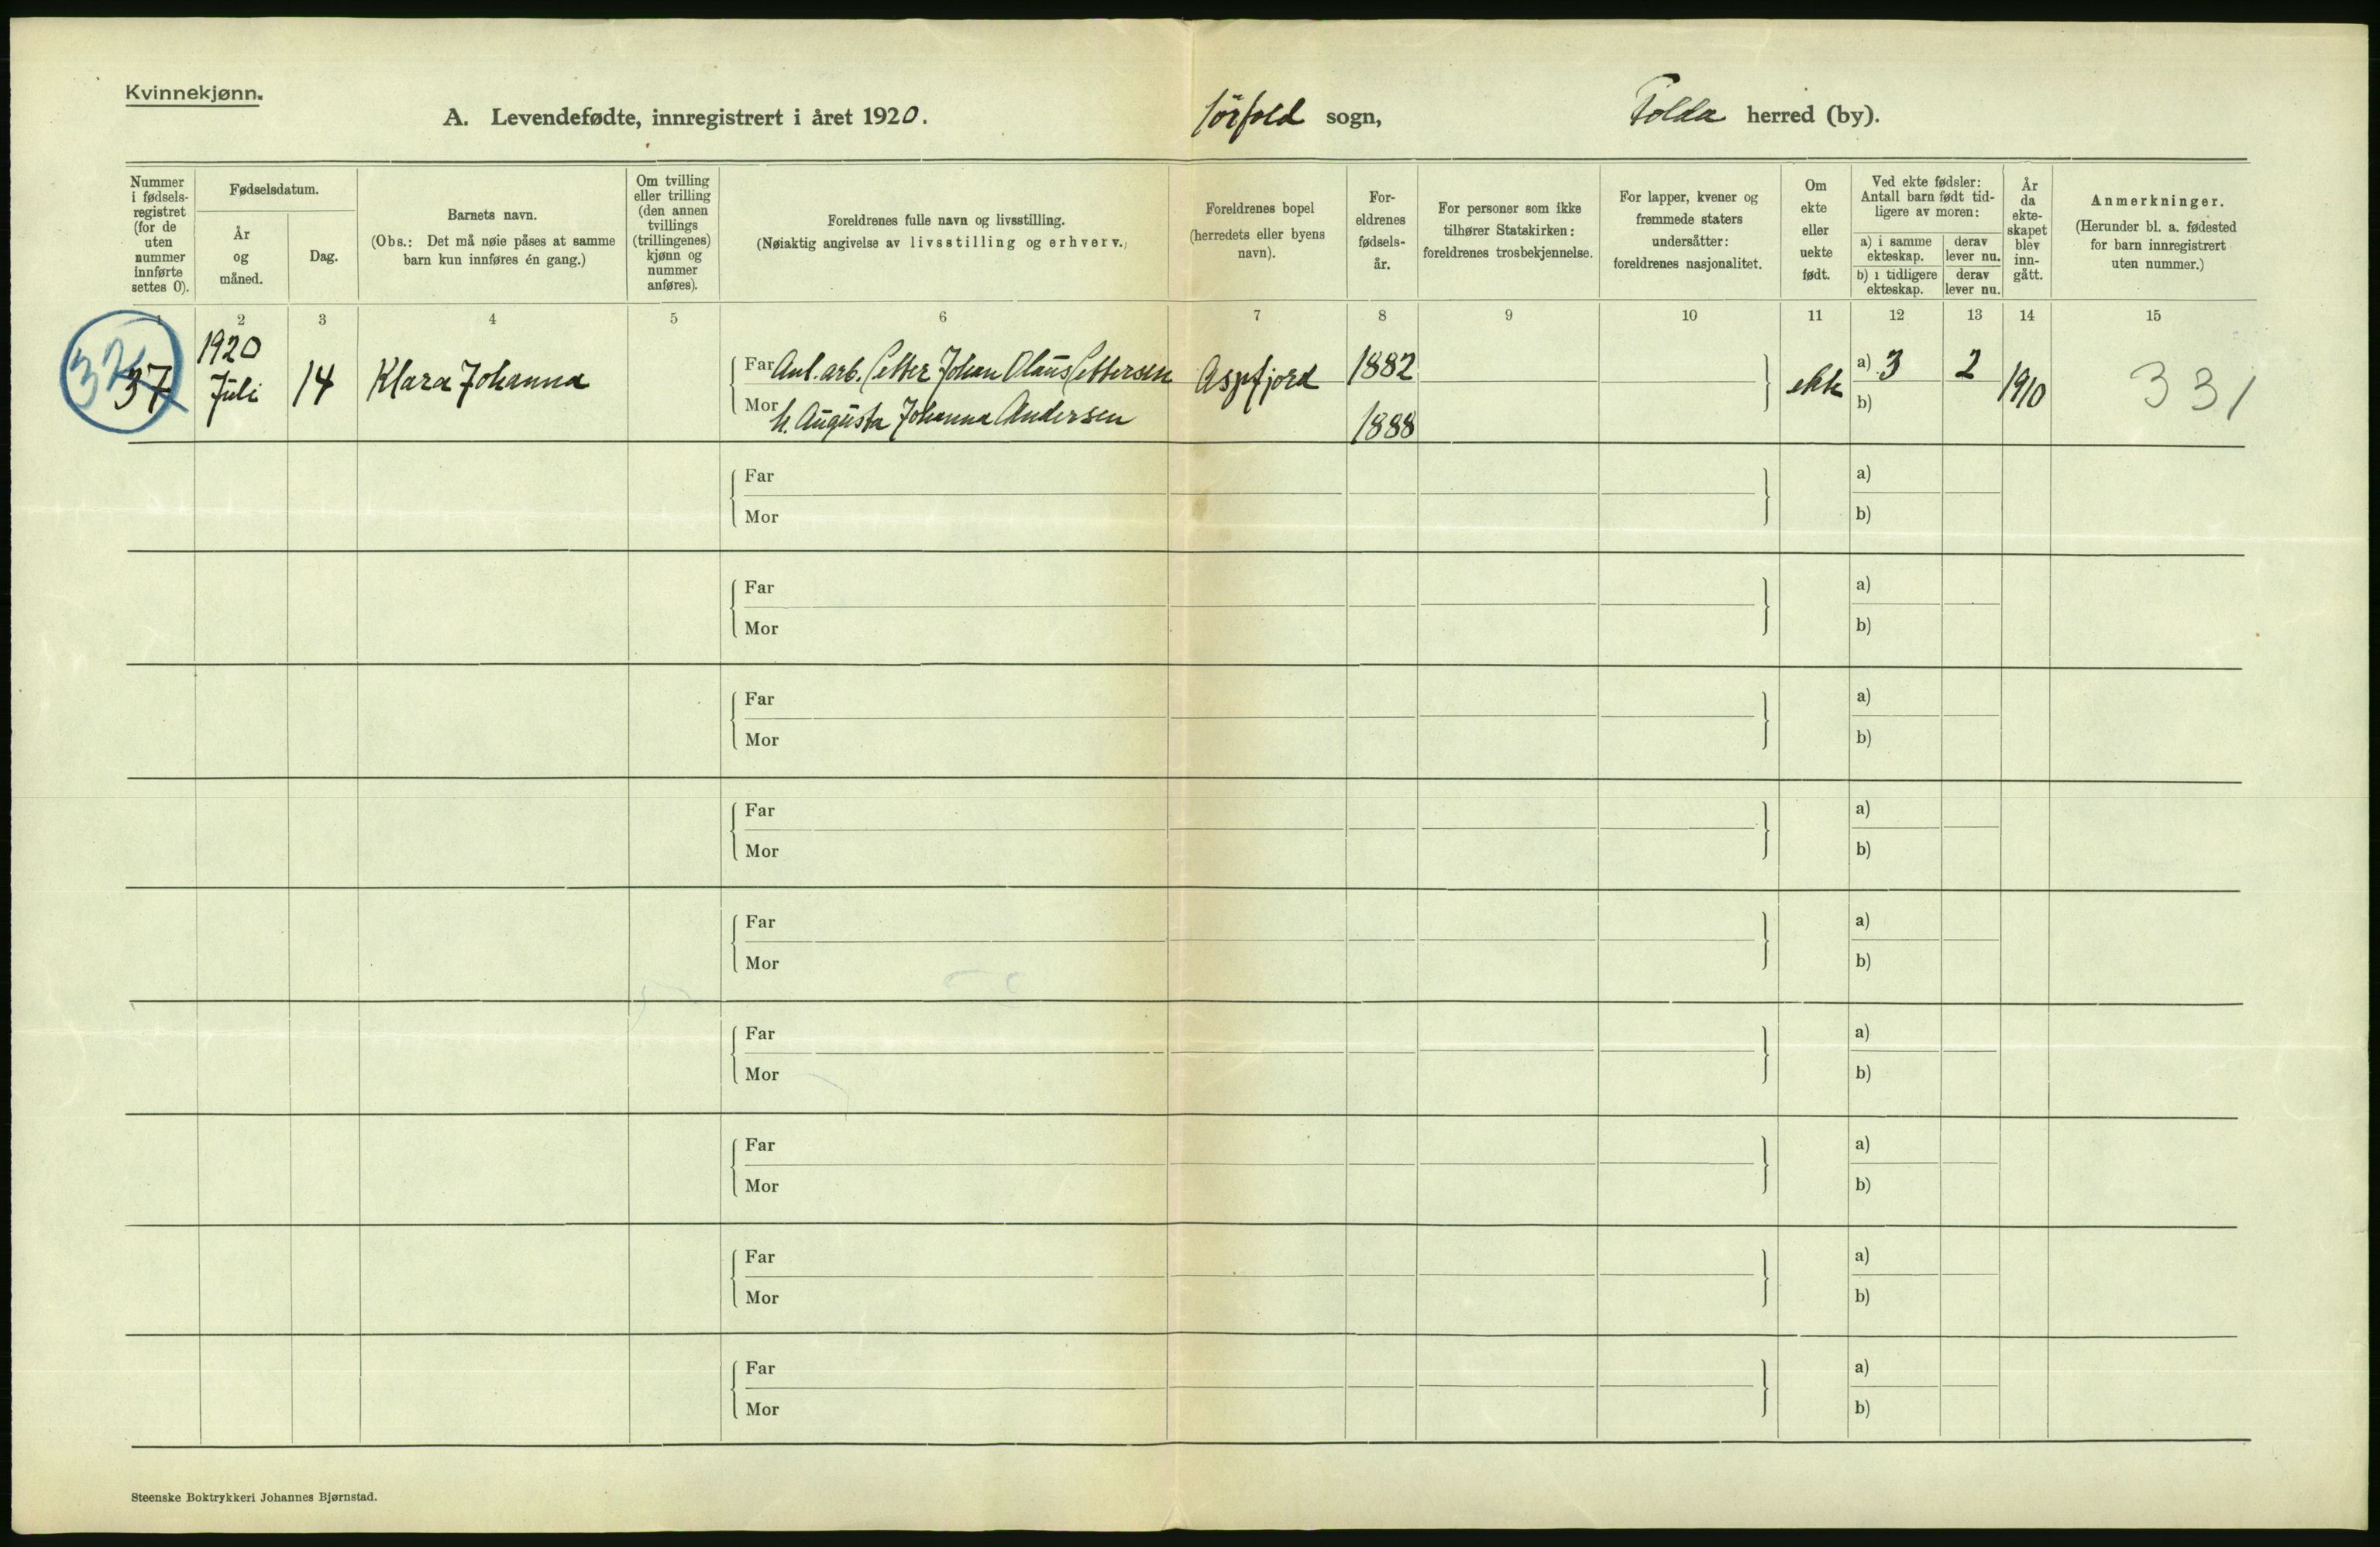 Kvinnekjønn.
A. Levendefødte, innregistrert i året 1920.
Sörfold sogn,
Folda herred (by).
Nummer
i fødsels-
registret
(for de
uten
nummer
innførte
settes 0).
Fødselsdatum.
År
og
måned.
Dag.
Barnets navn.
(Obs.: Det må nøie påses at samme
barn kun innføres én gang.)
Om tvilling
eller trilling
(den annen
tvillings
(trillingenes)
kjønn og
nummer
anføres).
Foreldrenes fulle navn og livsstilling.
(Nøiaktig angivelse av livsstilling og erhverv.)
Foreldrenes bopel
(herredets eller byens
navn).
For-
eldrenes
fødsels-
år.
For personer som ikke
tilhører Statskirken:
foreldrenes trosbekjennelse.
For lapper, kvener og
fremmede staters
undersåtter:
foreldrenes nasjonalitet.
Om
ekte
eller
uekte
født.
Ved ekte fødsler:
Antall barn født tid-
ligere av moren:
a) i samme
ekteskap.
derav
lever nu.
b) i tidligere
ekteskap.
derav
lever nu.
År
da
ekte-
skapet
blev
inn-
gått.
Anmerkninger.
(Herunder bl. a. fødested
for barn innregistrert
uten nummer.)
1 2 3 4 5 6 7 8 9 10 11 12 13 14 15
37
1920
Juli
14
Klara Johanna
Far Anl. arb. Petter Johan Olaus Pettersen
Mor h. Augusta Johanna Andersen
Aspfjord
1882
1888
ekte
a) 3
2
b)
1910
331
Far
Mor
a)
b)
Far
Mor
a)
b)
Far
Mor
a)
b)
Far
Mor
a)
b)
Far
Mor
a)
b)
Far
Mor
a)
b)
Far
Mor
a)
b)
Far
Mor
a)
b)
Far
Mor
a)
b)
Steenske Boktrykkeri Johannes Bjørnstad.